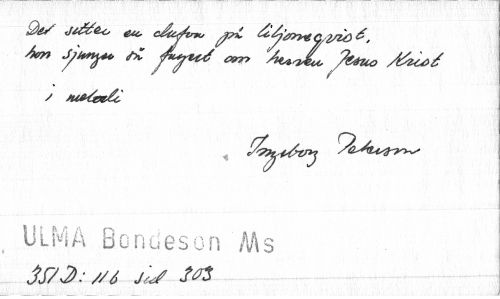 Det sitter en dufva på liljoneqvist,
hon sjunger så fagert om herren Jesus Krist
i melodi
Ingeborg Peterson
ULMA Bondeson Ms
351 D: 116 sid 303